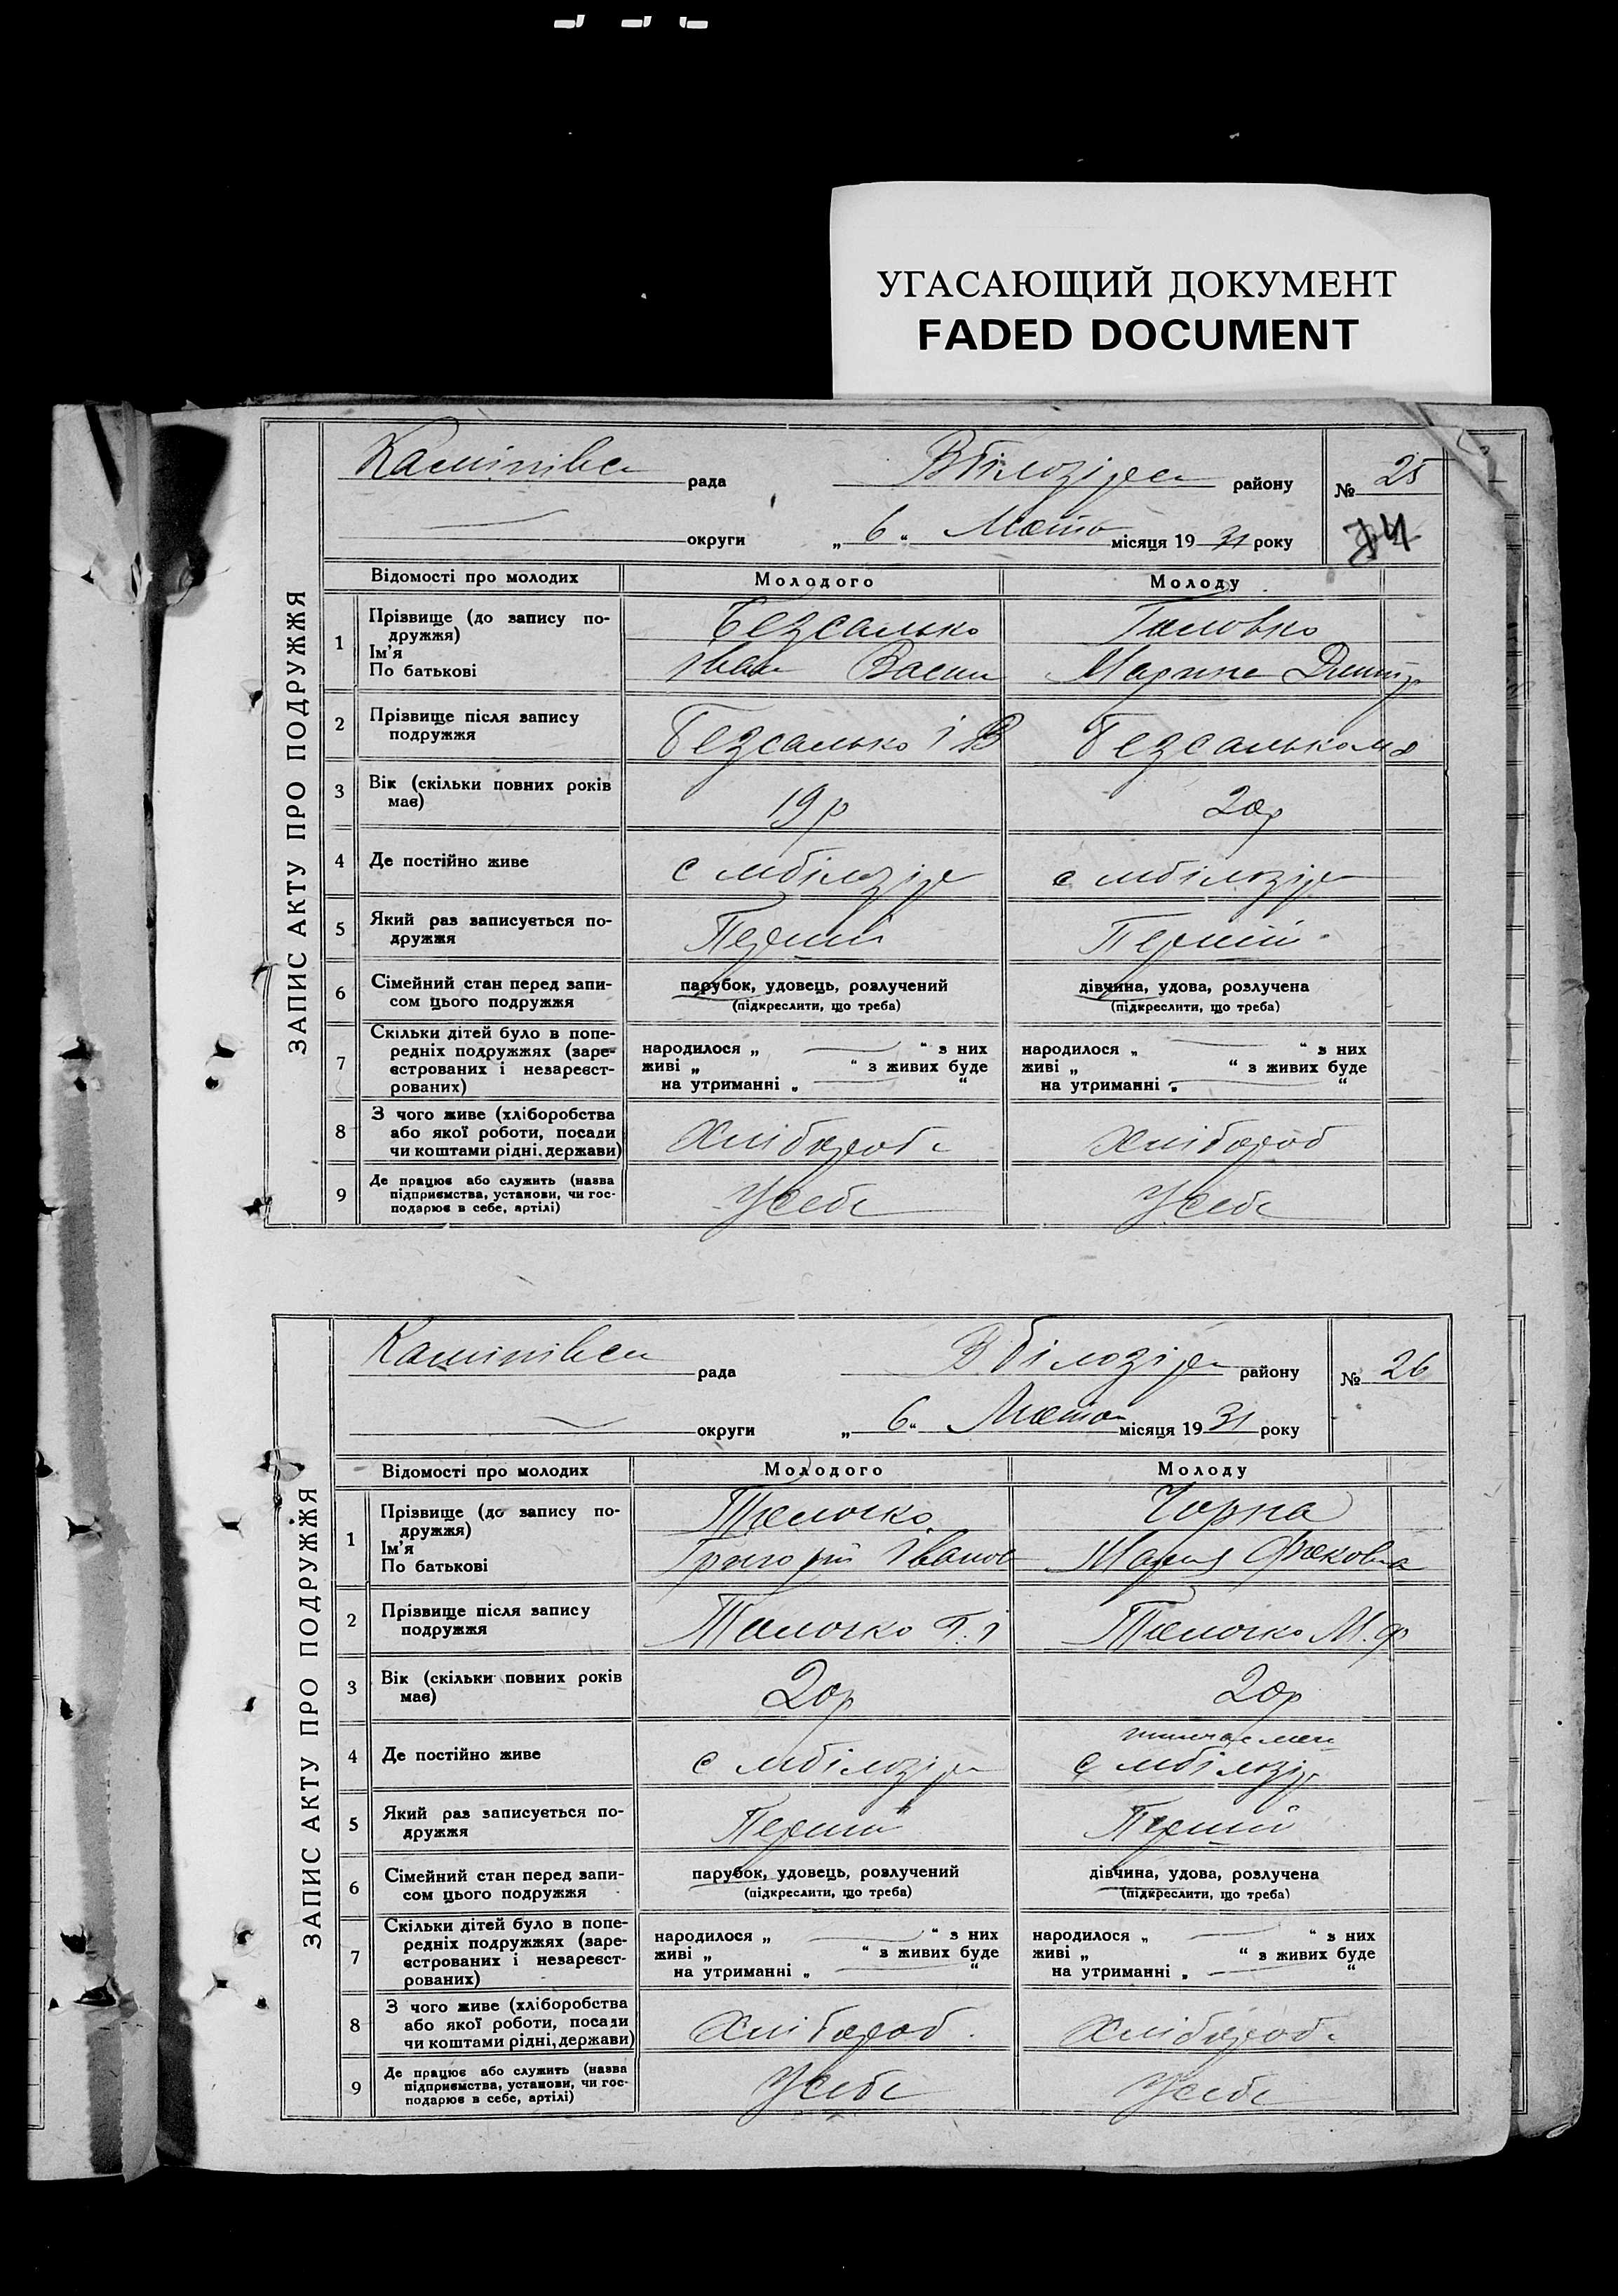 УГАСАЮЩИЙ ДОКУМЕНТ
FADED DOCUMENT
ЗАПИС АКТУ ПРО ПОДРУЖЖЯ
рада району № 25
округи „ 6 “ місяця 19 31 року
Відомості про молодих Молодого Молоду
1 Прізвище (до запису по-
дружжя)
Ім'я
По батькові
Безсалько Головко
Іван Васил Марина Дмитр
2 Прізвище після запису
подружжя
Безсалько І В Безсалько
3 Вік (скільки повних років
має)
19р 20р
4 Де постійно живе
с мбілозір с мбілозір
5 Який раз записується по-
дружжя
Перший Перший
6 Сімейний стан перед запи-
сом цього подружжя
парубок, удовець, розлучений дівчина, удова, розлучена
(підкреслити, що треба) (підкреслити, що треба)
7 Скільки дітей було в попе-
редніх подружжях (заре-
єстрованих і незареєст-
рованих)
народилося „ “ з них народилося „ “ з них
живі „ “ з живих буде живі „ “ з живих буде
на утриманні „ “ на утриманні „ “
8 З чого живе (хліборобства
або якої роботи, посади
чи коштами рідні, держави)
Хлібороб Хлібороб
9 Де працює або служить (назва
підприємства, установи, чи гос-
подарює в себе, артілі)
У себе У себе
ЗАПИС АКТУ ПРО ПОДРУЖЖЯ
рада В білозір району № 26
округи „ 6 “ місяця 19 31 року
Відомості про молодих Молодого Молоду
1 Прізвище (до запису по-
дружжя)
Ім'я
По батькові
Толочко Чорна
Григорій Іванов Мария
2 Прізвище після запису
подружжя
Толочко Г. І Толочко М. Ф
3 Вік (скільки повних років
має)
20р 20р
4 Де постійно живе
с мбілозір с мбілозір
5 Який раз записується по-
дружжя
Перший Перший
6 Сімейний стан перед запи-
сом цього подружжя
парубок, удовець, розлучений дівчина, удова, розлучена
(підкреслити, що треба) (підкреслити, що треба)
7 Скільки дітей було в попе-
редніх подружжях (заре-
єстрованих і незареєст-
рованих)
народилося „ “ з них народилося „ “ з них
живі „ “ з живих буде живі „ “ з живих буде
на утриманні „ “ на утриманні „ “
8 З чого живе (хліборобства
або якої роботи, посади
чи коштами рідні, держави)
Хлібороб Хлібороб
9 Де працює або служить (назва
підприємства, установи, чи гос-
подарює в себе, артілі)
У себе У себе